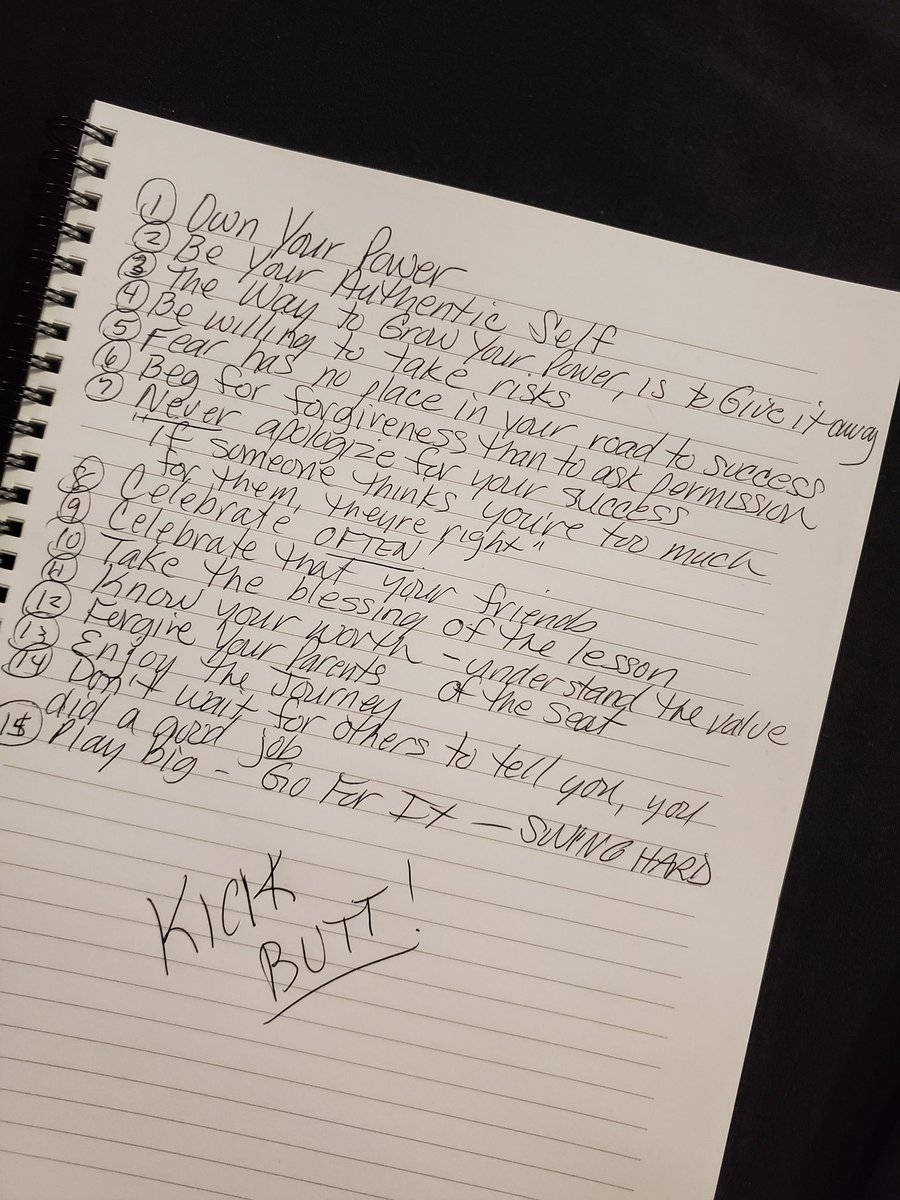 ① Own Your Power
② Be Your Authentic Self
③ The Way to Grow Your Power, is to Give it away
④ Be willing to take risks
⑤ Fear has no place in your road to success
⑥ Beg for forgiveness than to ask permission
⑦ Never apologize for your success
If someone thinks you're too much
for them, theyre right"
⑧ Celebrate OFTEN
⑨ Celebrate that your friends
⑩ Take the blessing of the lesson
⑪ Know your worth - understand the value
of the seat
⑫ Forgive Your Parents
⑬ Enjoy the Journey
⑭ Don't wait for others to tell you, you
did a good job
⑮ Play Big - Go For It - SWING HARD
KICK
BUTT!